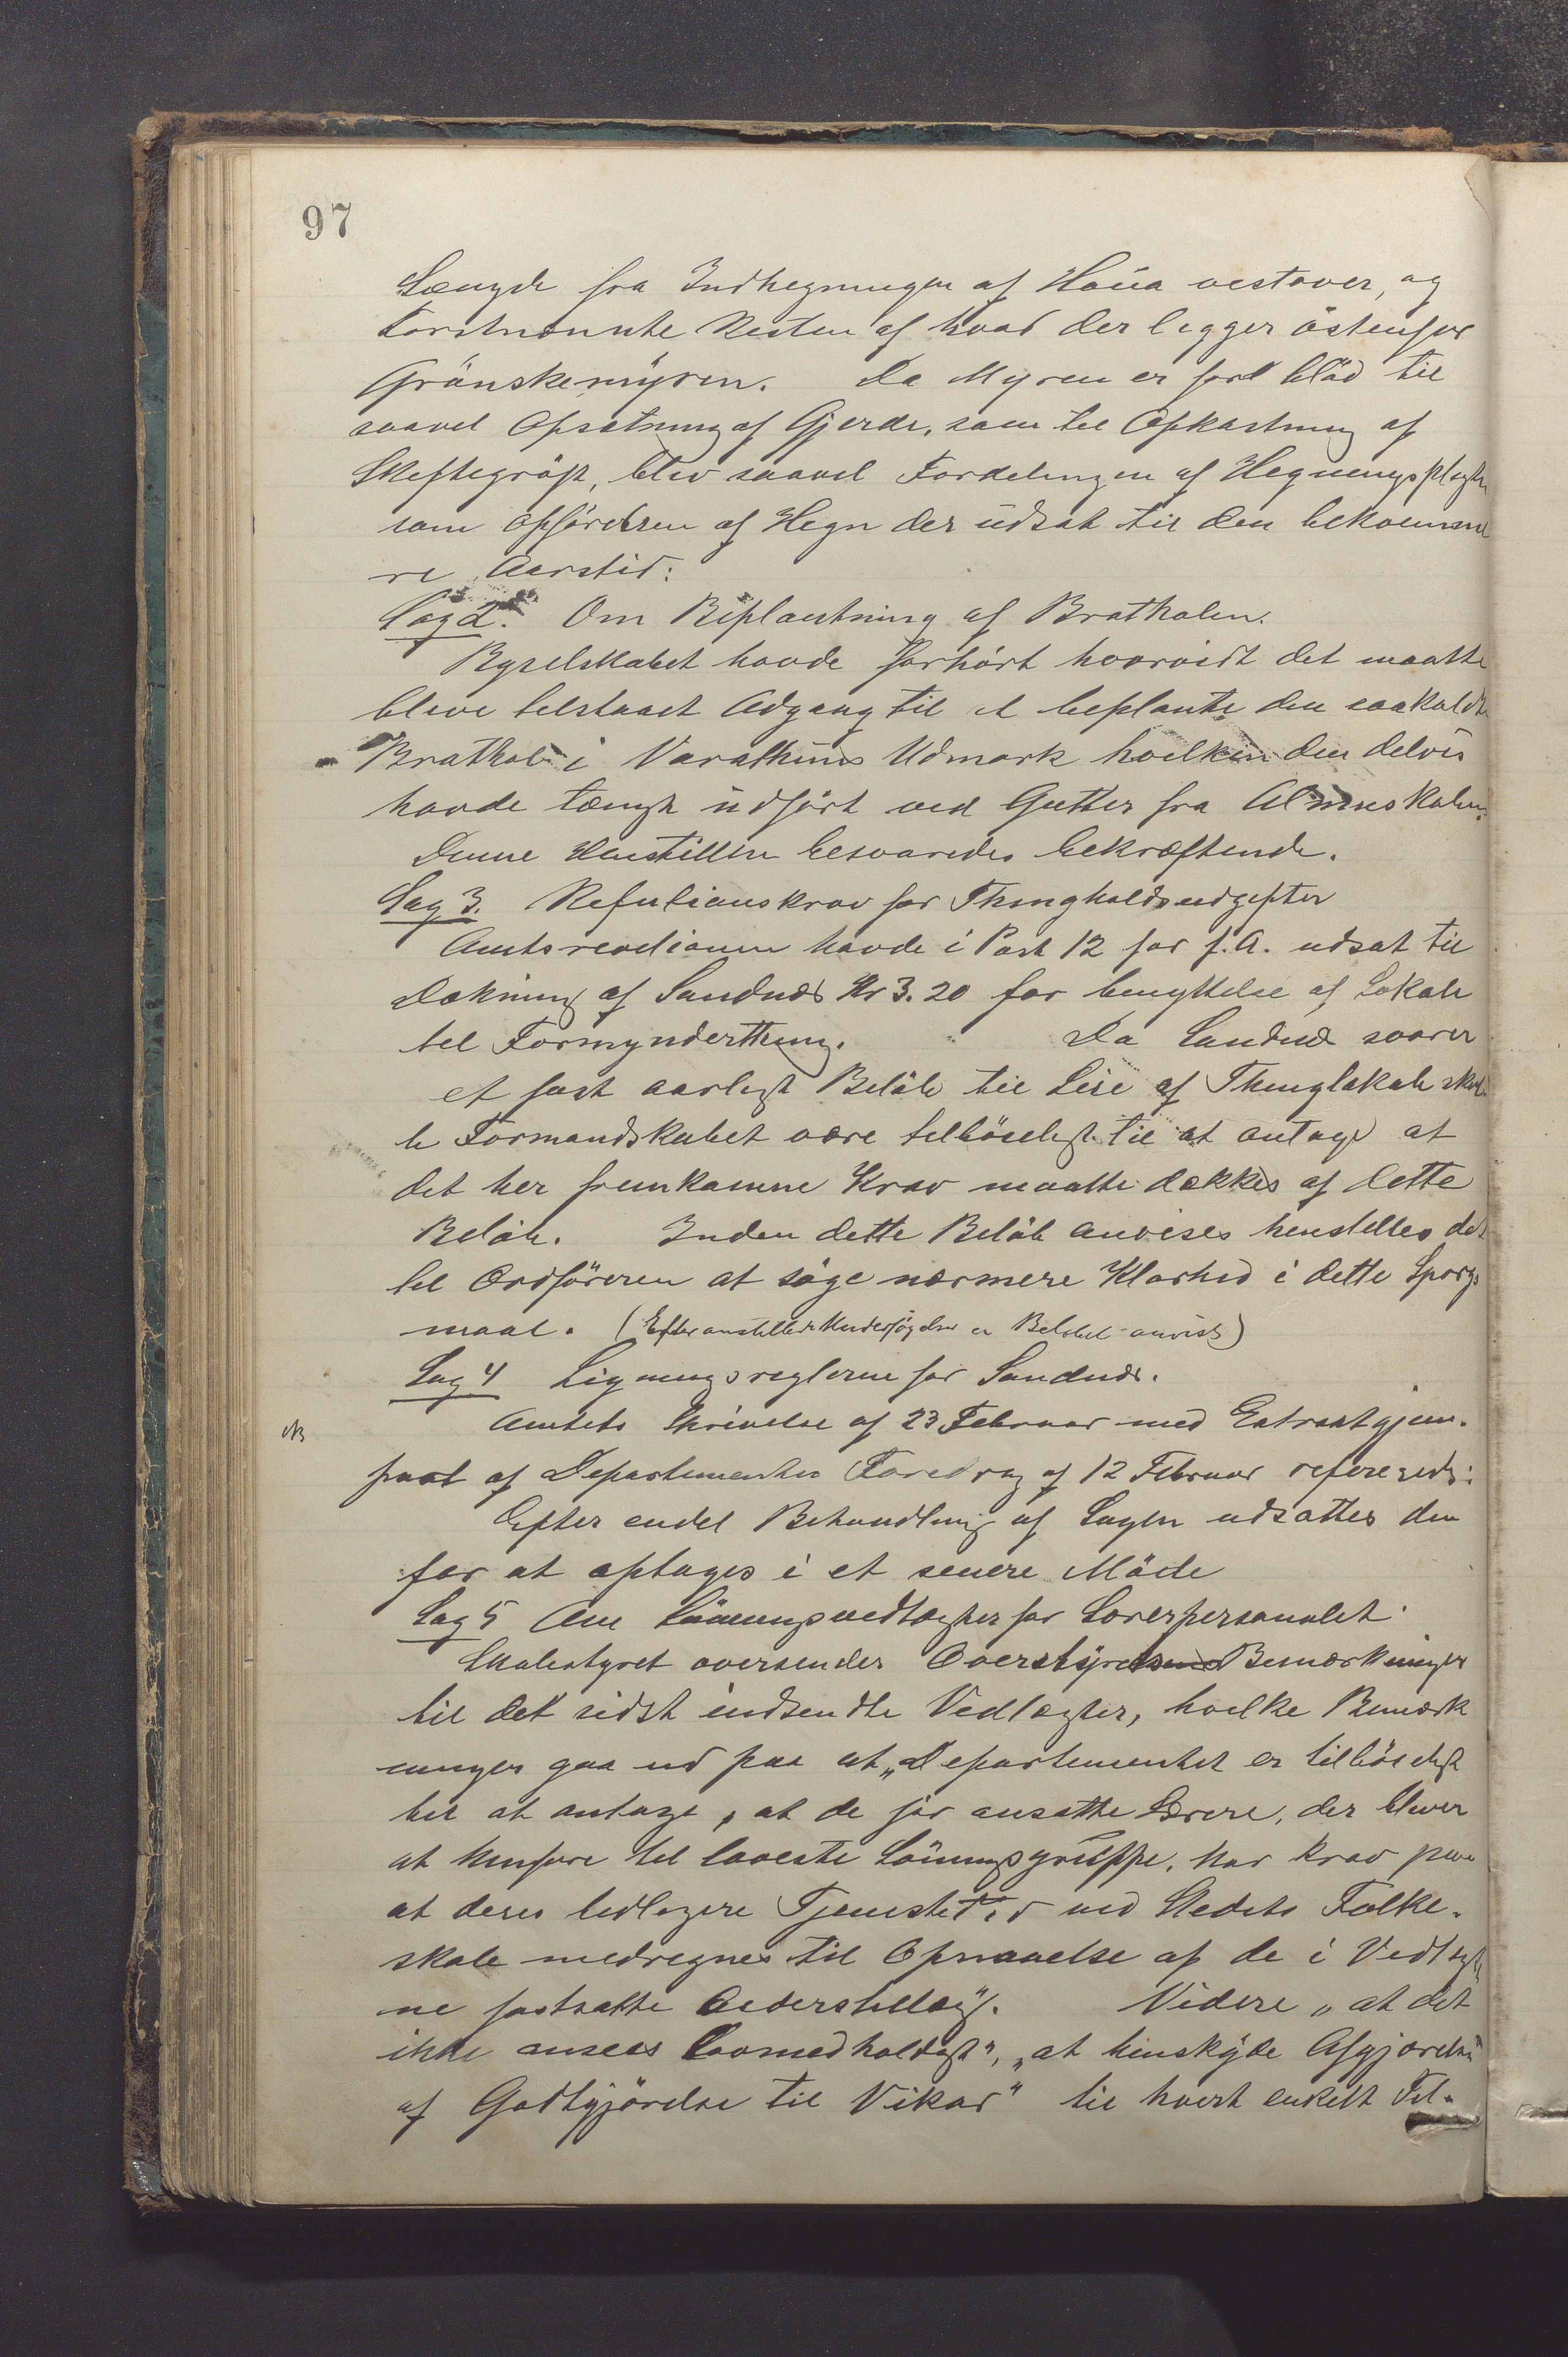 97
Længde fra Indhegningen af Haua vestover, og
førstnevnte Resten af hvad der ligger østenfor
Grönskemyren. Da Myren er for blød til
saavel Opsætning af Gjerde, som til Opkastning af
Skiftegrøft, blev saavel Fordelingen af Hegningspligten
som opførelsen af Hegn der udsat til den bekvemme
re Aarstid:
Sag 2. Om Beplantning af Bratholen.
Byselskabet havde forhørt hvorvidt det maatte
blive tilstaaet Adgang til at beplante den saakaldte
Brathole i Varathuns Udmark hvilken den delvis
havde tænkt udført ved Gutter fra Almueskolen.
Denne Henstillen besvaredes bekræftende.
Sag 3. Refusionskrav for Thingholdsudgifter
Amtsrevisionen havde i Post 12 for f. A. udsat til
Dækning af Sandnæs Kr 3.20 for benyttelse af Lokale
til Formynderthing. Da Sandnæs svarer
et fast aarligt Beløb til Leie af Thinglokale skul
le Formandskabet være tilbøieligt til at antage at
det her fremkomne Krav maatte dækkes af dette
Beløb. Inden dette Beløb anvises henstilles det
til Ordføreren at søge nærmere Klarhed i dette Spørgs
maal. (Efter anstillede Undersøgelser er Beløbet anvist)
Sag 4 Ligningsreglerne for Sandnæs.
NB Amtets Skrivelse af 23 Februar med Extraktgjen-
part af Departementets Foredrag af 12 Februar refereredes:
Efter endel Behandling af Sagen udsattes den
for at optages i et senere Møde
Sag 5 Om Lønningsvedtægter for Lærerpersonalet.
Skolestyret oversender Overstyrelsens Bemærkninger
til det sidst indsendte Vedtægter, hvilke Bemærk
ninger gaa ud paa at „Departementet er tilbøieligt
til at antage, at de før ansatte Lærere, der bliver
at henføre til laveste Lønningsgruppe, har Krav paa
at deres tidligere Tjenestetid ved Stedets Folke-
skole medregnes til Opnaaelse af de i Vedtægter
ne fastsatte Alderstillæg". Videre „at det
ikke ansees lovmedholdigt", „at henskyde Afgjørelsen
af Godtgjørelse til Vikar" til hvert enkelt Til-